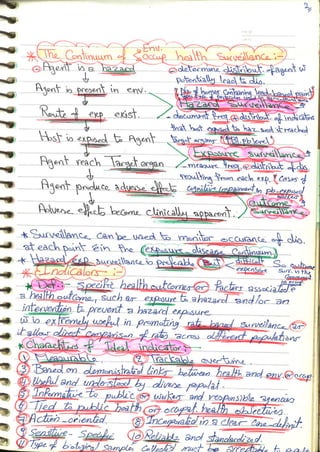 * The Continuum of Env. Occup health Surveillance :-
Agent is a hazard
determine distribut. of agent
potentially lead to dis.
Agent is present in env.
Hazard Surveillance
Route of exp. exist.
document freq + distribut. of indicative
Host is exposed to Agent
that host exposed to haz. and it reached
target organ
Exposure surveillance
Agent reach Target organ
measure freq + distribut. of dis
resulting from each exp.
Agent produce adverse effects
cognitive impairment in pb. exposed
outcome surveillance
Adverse effects become clinically apparent.
* Surveillance can be used to monitor occurance of dis.
at each point in the exposure disease Continuum
* Hazard, exp surveillance is preferable But difficult expensive
* Indicators :-
* Def: - Specific health outcomes or Factors associated
a health outcome, such as exposure to a hazard and/or an
intervention to prevent a hazard exposure
is extremely useful in promoting rate based surveillance or
it allow direct comparison of rates across different populations
* Characters of Ideal indicator :-
1 Measurable 2 Trackable overtime.
3 Based on demonstrated links between health and env. or occup
4 Useful and understood by diverse populat.
5 Informative to public or worker and responsible agencies
6 Tied to public health or occupat. health objectives
7 Action-oriented 8 Incorporated in a clear case-definit
9 Sensitive - Specific 10 Reliable and Standardized.
11 Type of biological samples collected must be acceptable to